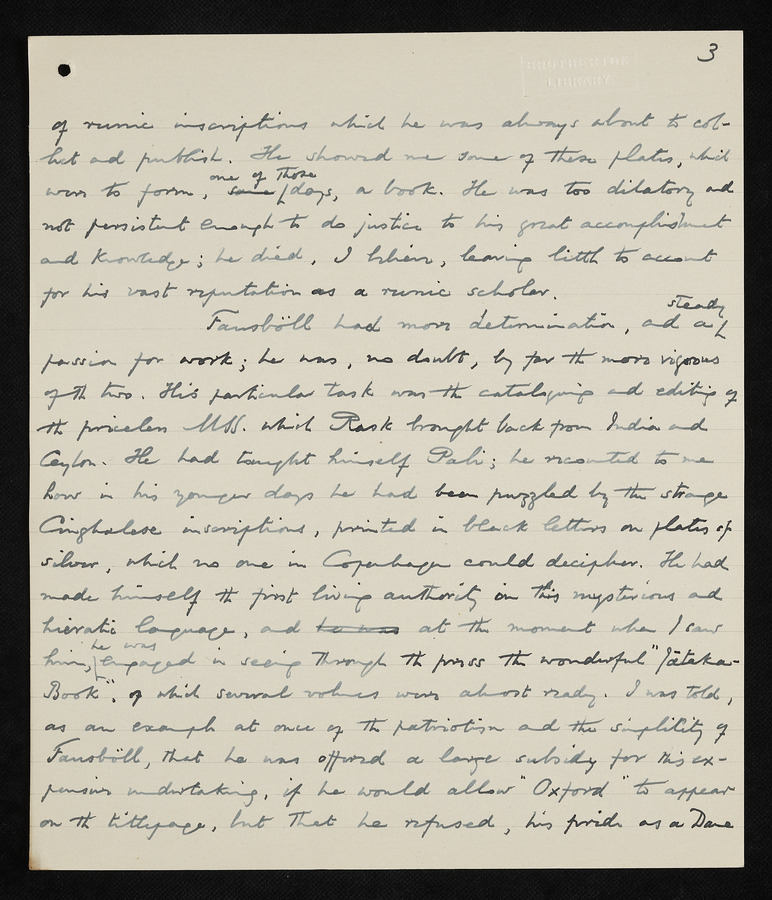 3
BROTHERTON
LIBRARY
of runic inscriptions which he was always about to col-
lect and publish. He showed me some of these plates, which
were to form, some one of those days, a book. He was too dilatory and
not persistent enough to do justice to his great accomplishment
and knowledge; he died, I believe, leaving little to account
for his vast reputation as a runic scholar.
Fausböll had more determination, and a steady
passion for work; he was, no doubt, by far the more vigorous
of the two. His particular task was the cataloguing and editing of
the priceless MSS. which Rask brought back from India and
Ceylon. He had taught himself Pali; he recounted to me
how in his younger days he had been puzzled by the strange
Cinghalese inscriptions, printed in black letters on plates of
silver, which no one in Copenhagen could decipher. He had
made himself the first living authority in this mysterious and
hieratic language, and he was at the moment when I saw
him, he was engaged in seeing through the press the wonderful "Jātaka-
Book", of which several volumes were almost ready. I was told,
as an example at once of the patriotism and the simplicity of
Fausböll, that he was offered a large subsidy for this ex-
pensive undertaking, if he would allow "Oxford" to appear
on the titlepage, but that he refused, his pride as a Dane